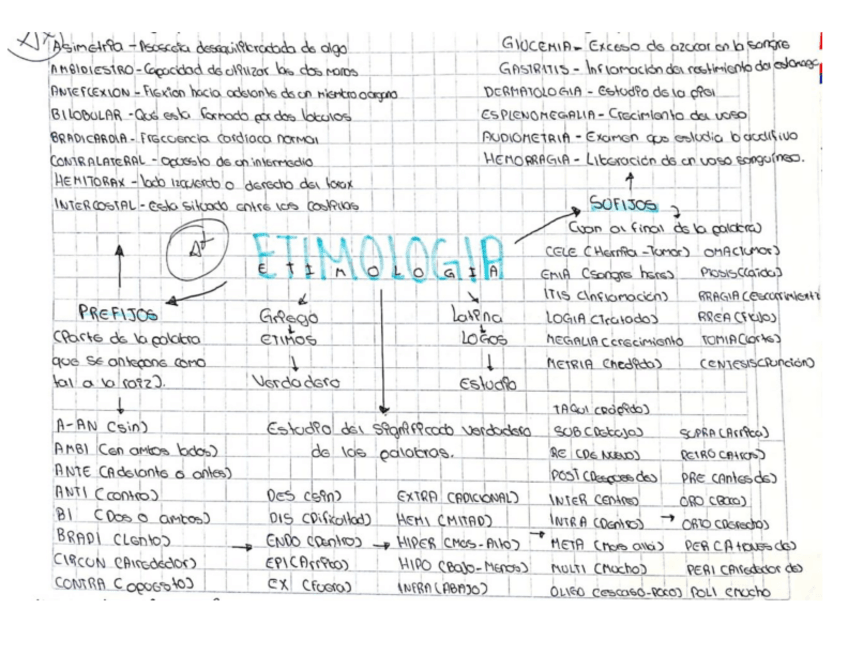 Asimetria - Asuscota desequilibratada de algo
AMBIDIESTRO - Capacidad de utilizar las dos manos
ANTEFLEXION - Flexion hacia adelante de un miembro organo
BILOBULAR - Que esta formado por dos lobulos
BRADICARDIA - Frecuencia cardiaca normal
CONTRALATERAL - opuesto de un intermedio
HEMITORAX - lado izquierdo o derecho del torax
INTERCOSTAL - Esta situado entre las costillas
GLUCEMIA - Exceso de azucar en la sangre
GASTRITIS - Inflamación del revestimiento del estomago
DERMATOLOGIA - Estudio de la piel
ESPLENOMEGALIA - Crecimiento del vaso
AUDIOMETRIA - Examen que estudia lo auditivo
HEMORRAGIA - Liberación de un vaso sanguíneo.
SUFIJOS
(Van al final de la palabra)
CELE (Hernia-Tumor) OMA (Tumor)
EMIA (Sangre hems) PTOSIS (Caida)
ITIS (Inflamación) RRAGIA (Escurrimiento
LOGIA (Tratado) RREA (Flujo)
MEGALIA (crecimiento TOMIA (Corte)
METRIA (Medida) CENTESIS (Punción)
ETIMOLOGIA
E T I M O L O G I A
A+
PREFIJOS
(Parte de la palabra
que se antepone como
tal a la raíz).
Griego
ETIMOS
Verdadero
Latina
LOGOS
Estudio
Estudio del significado verdadero
de las palabras.
A-AN (Sin)
AMBI (en ambos lados)
ANTE (Adelante o antes)
ANTI (Contra)
BI (Dos o ambos)
BRADI (Lento)
CIRCUN (Alrededor)
CONTRA (opuesto)
DES (Sin)
DIS (Dificultad)
ENDO (Dentro)
EPI (Arriba)
EX (Fuera)
EXTRA (ADICIONAL)
HEMI (MITAD)
HIPER (Mas-Alto)
HIPO (Bajo-Menos)
INFRA (ABAJO)
TAQUI (Rápido)
SUB (Debajo)
RE (DE NUEVO)
POST (Despues de)
INTER (Entre)
INTRA (Dentro)
META (Mas alla)
MULTI (Mucho)
OLIGO (escaso-poco)
SUPRA (Arriba)
RETRO (Atras)
PRE (Antes de)
ORO (Boca)
ORTO (Derecho)
PER (Atraves de)
PERI (Alrededor de)
POLI (Mucho